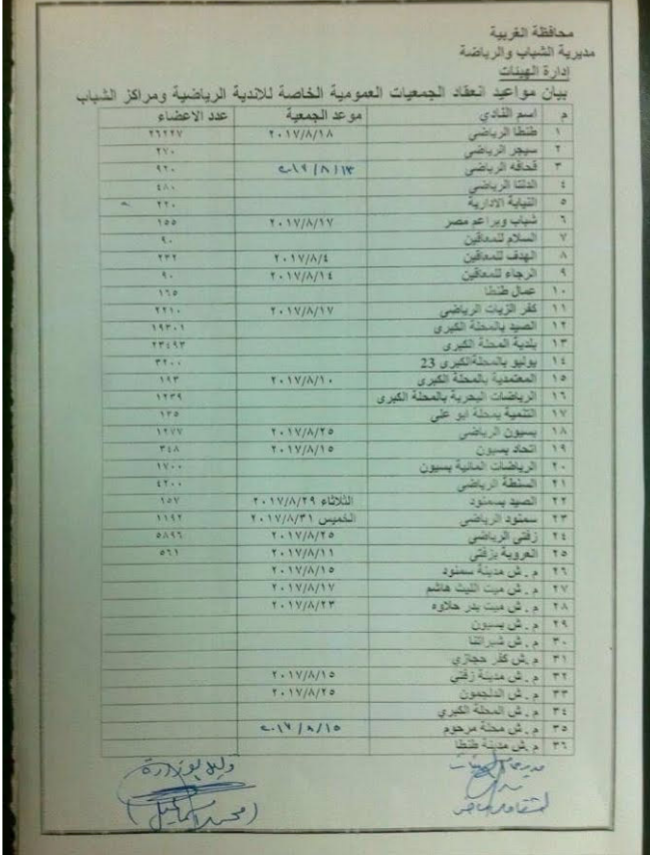 محافظة الغربية
مديرية الشباب والرياضة
إدارة الهيئات
بيان مواعيد انعقاد الجمعيات العمومية الخاصة للاندية الرياضية ومراكز الشباب
م اسم النادي موعد الجمعية عدد الاعضاء
١ طنطا الرياضي ٢٠١٧/٨/١٨ ٢٦٢٢٧
٢ سيجر الرياضي ٢٧٠
٣ قحافه الرياضي ٩٢٠
٤ الدلتا الرياضي ٤٨٠
٥ النيابة الادارية ٢٢٠
٦ شباب وبراعم مصر ٢٠١٧/٨/١٧ ١٥٥
٧ السلام للمعاقين ٩٠
٨ الهدف للمعاقين ٢٠١٧/٨/٤ ٢٣٢
٩ الرجاء للمعاقين ٢٠١٧/٨/١٤ ٩٠
١٠ عمال طنطا ١٦٥
١١ كفر الزيات الرياضي ٢٠١٧/٨/١٧ ٢٢١٠
١٢ الصيد بالمحلة الكبرى ١٩٣٠١
١٣ بلدية المحلة الكبرى ٢٣٤٩٣
١٤ يوليو بالمحلةالكبرى 23 ٣٢٠٠
١٥ المعتمدية بالمحلة الكبرى ٢٠١٧/٨/١٠ ١٩٣
١٦ الرياضات البحرية بالمحلة الكبرى ١٢٣٩
١٧ التنمية بمحلة ابو على ١٣٥
١٨ بسيون الرياضي ٢٠١٧/٨/٢٥ ١٢٧٧
١٩ اتحاد بسيون ٢٠١٧/٨/١٥ ٣٤٨
٢٠ الرياضات المائية بسيون ١٧٠٠
٢١ السنطة الرياضي ٤٢٠٠
٢٢ الصيد بسمنود الثلاثاء ٢٠١٧/٨/٢٩ ١٥٧
٢٣ سمنود الرياضي الخميس ٢٠١٧/٨/٣١ ١١٩٢
٢٤ زفتي الرياضي ٢٠١٧/٨/٢٥ ٥٨٩٦
٢٥ العروبة بزفتي ٢٠١٧/٨/١١ ٥٦١
٢٦ م . ش مدينة سمنود ٢٠١٧/٨/١٥
٢٧ م . ش ميت الليث هاشم ٢٠١٧/٨/١٧
٢٨ م . ش ميت بدر حلاوه ٢٠١٧/٨/٢٣
٢٩ م . ش بسيون
٣٠ م . ش شبراتنا
٣١ م .ش كفر حجازي
٣٢ م . ش مدينة زفتي ٢٠١٧/٨/١٥
٣٣ م . ش الدلجمون ٢٠١٧/٨/٢٥
٣٤ م . ش المحلة الكبري
٣٥ م . ش محلة مرحوم ٢٠١٧/٨/١٥
٣٦ م .ش مدينة طنطا
وكيل الوزارة
(محمد اسماعيل)